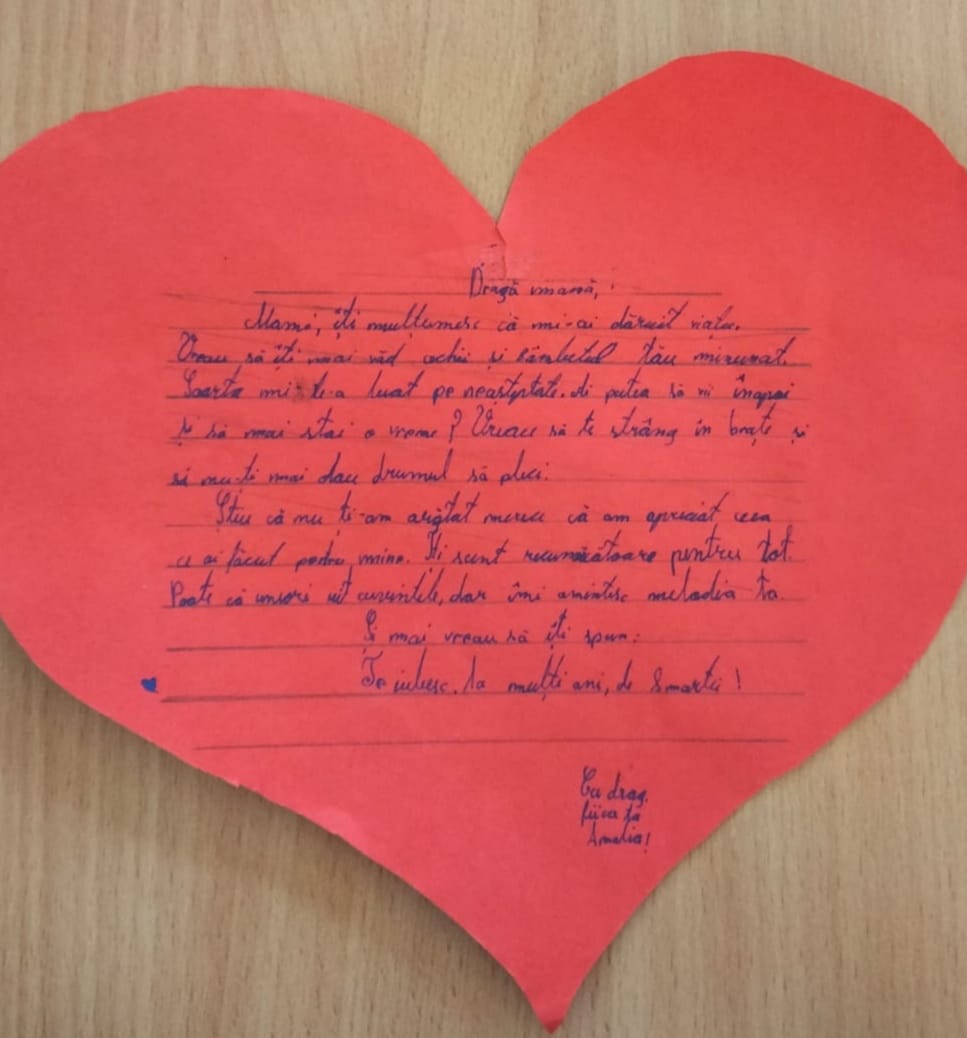 Dragă mamă,
Mami, îți mulțumesc că mi-ai dăruit viața.
Vreau să îți mai văd ochii și zâmbetul tău minunat.
Soarta mi te-a luat pe neașteptate. Ai putea să vii înapoi
și să mai stai o vreme? Vreau să te strâng în brațe și
să nu-ți mai dau drumul să pleci.
Știu că nu ți-am arătat mereu că am apreciat ceea
ce ai făcut pentru mine. Îți sunt recunoscătoare pentru tot.
Poate că uneori uit cuvintele, dar îmi amintesc melodia ta.
Și mai vreau să îți spun:
Te iubesc. La mulți ani, de 8 martie!
Cu drag,
fiica ta
Amalia!